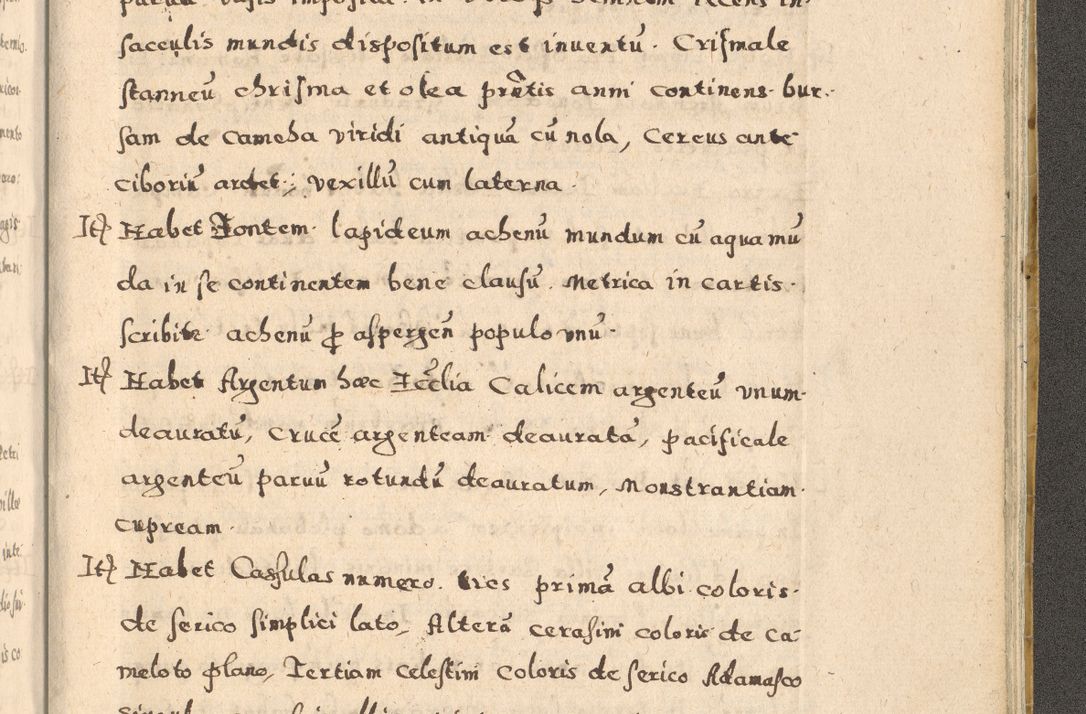 sacculis mundis dispositum est inventū. Crismale
stanneū chrisma et olea prẽtis anni continens. bur-
sam de cameha viridi antiquā cū nola, Cereus ante
ciboriū ardet; vexillū cum laterna.
Itẽ Habet Fontem. lapideum achenū mundum cū aqua mū
da in se continentem bene clausū. Metrica in cartis.
scribitr achenū p̱ aspergeñ populo vnū.
Itẽ Habet Argentum hæc Ecc̃lia Calicem argenteū vnum.
deauratū, Crucē argenteam. deauratā, pacificale
argenteū paruū rotundū deauratum, Monstrantiam.
cupream.
Itẽ Habet Casulas numero. tres primā albi coloris.
de serico simplici lato, Alterā cerasini coloris de ca-
meloto plano, Tertiam celestini coloris de serico Adamasco